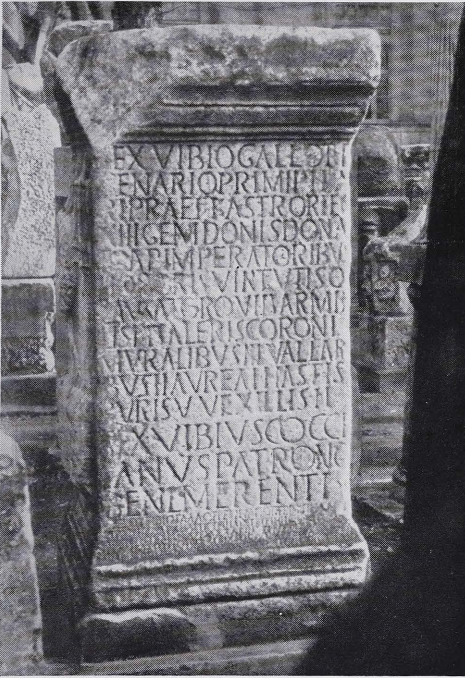 EX VIBIO GALLO TRI
ENARIO PRIMIPIL
I PRAEF KASTROR LE
XIII GEM DONIS DONA
O AB IMPERATORIBV
HONORIS VIRTVTISQ
AVSA TORQVIB ARMIL
IS PHALERIS CORONI
MVRALIBVS III VALLAR
BVS II AVREA I HASTIS
VRIS V VEXILLIS II
EX VIBIVS COCCE
IANVS PATRONO
BENEMERENTI